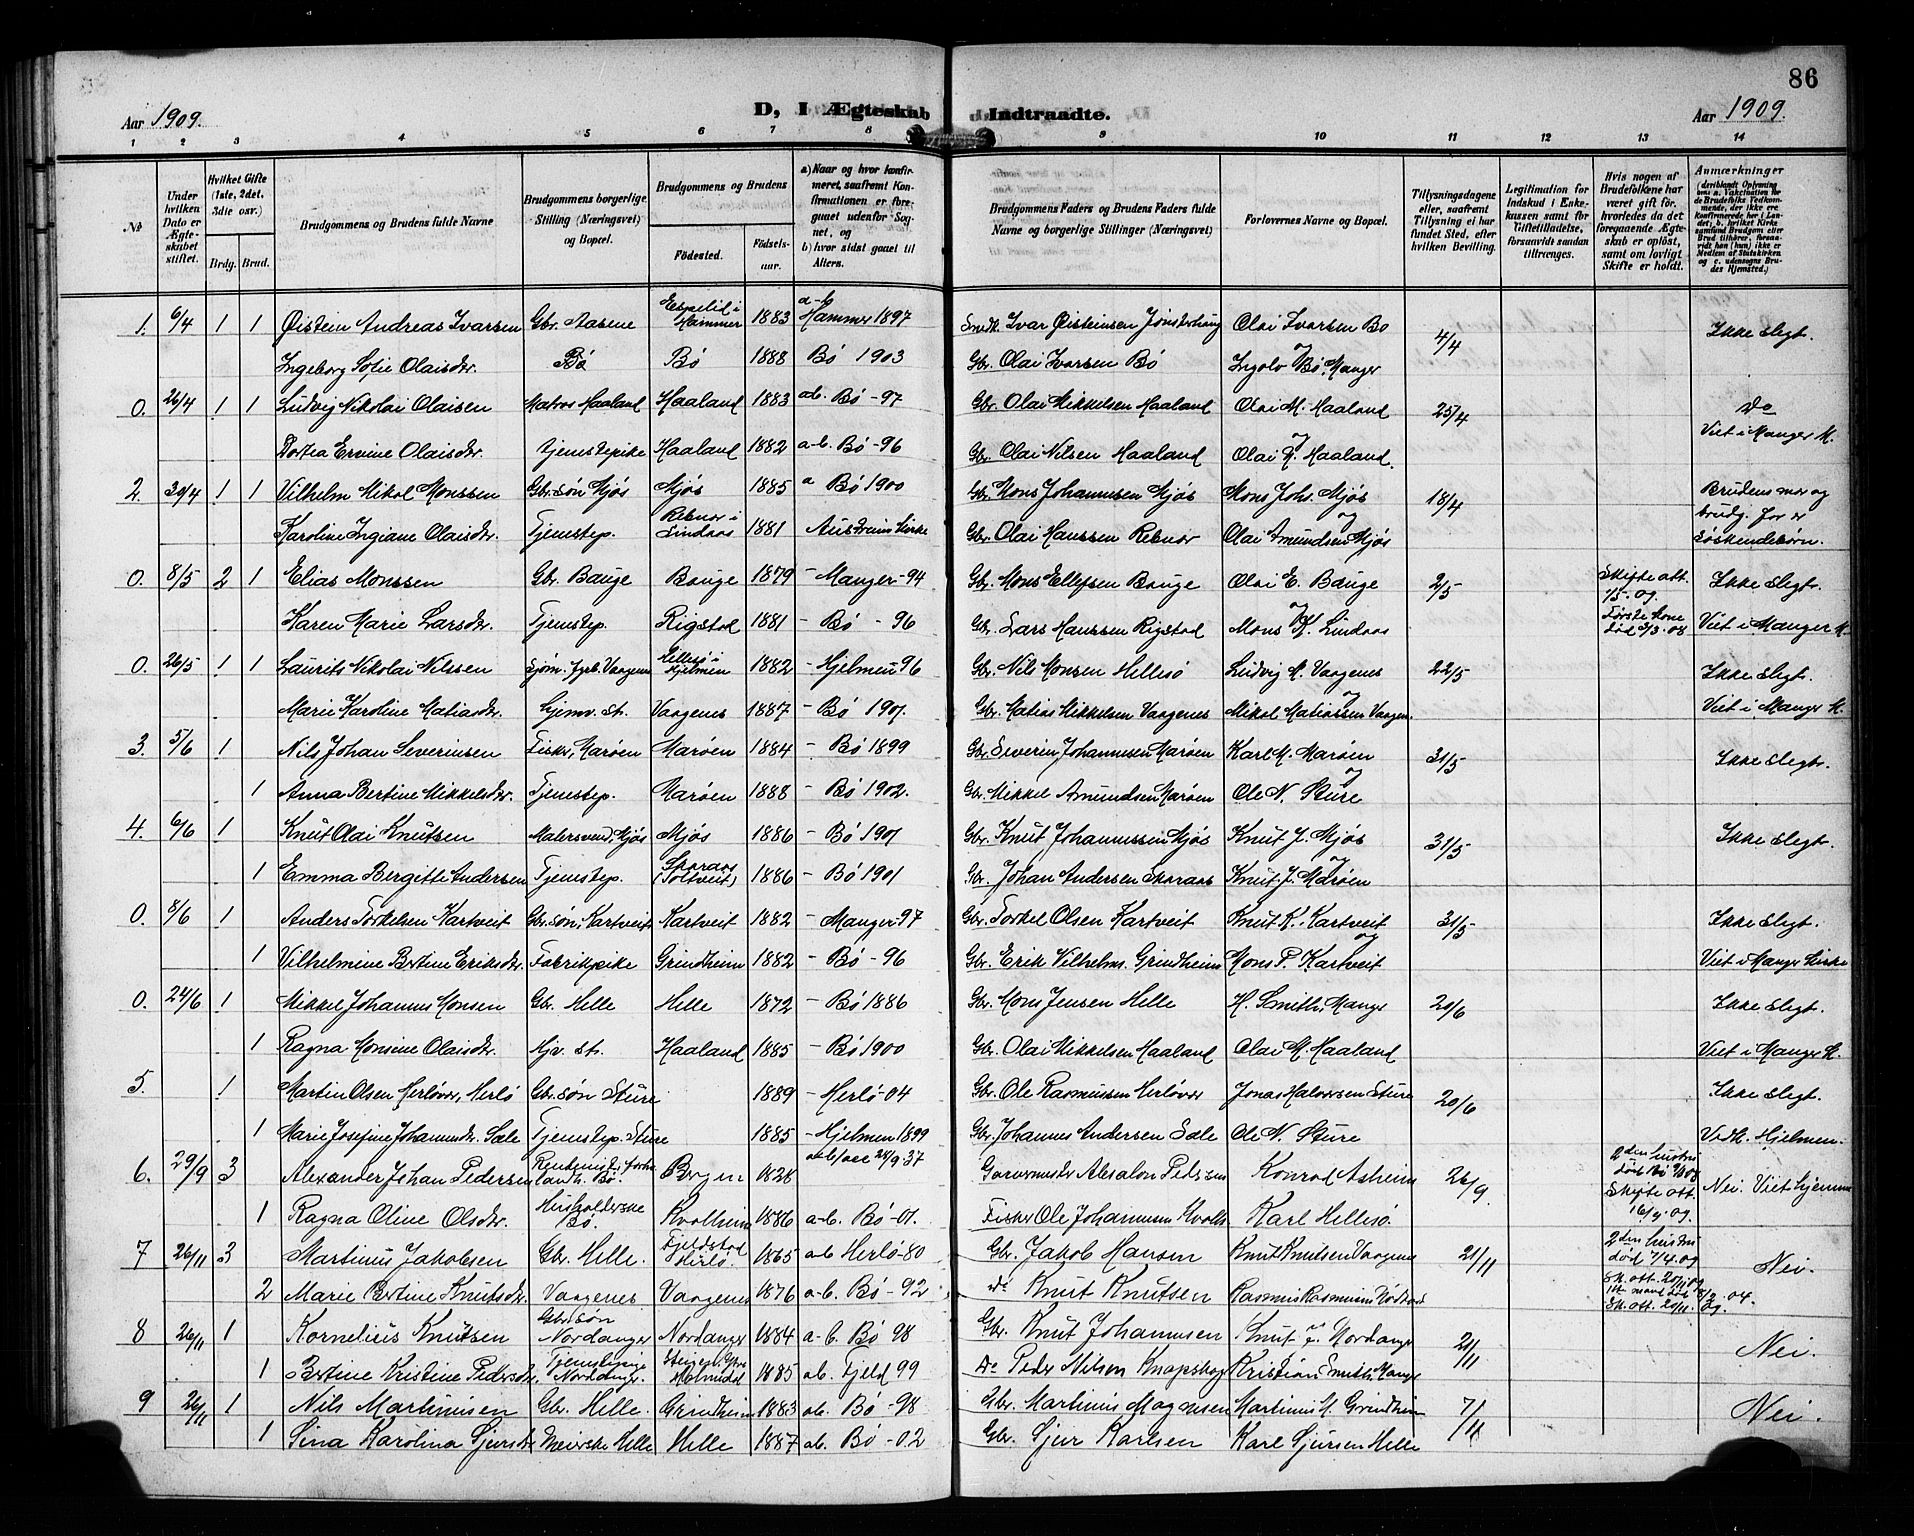 86
Aar 1909. D, I Ægteskab Indtraadte. Aar 1909.
1 2 3 4 5 6 7 8 9 10 11 12 13 14
No
Under hvilken Dato er Ægteskabet stiftet.
Hvilket Gifte (1ste, 2det, 3die osv.)
Brdg. Brud.
Brudgommens og Brudens fulde Navne
Brudgommens borgerlige Stilling (Næringsvei) og Bopæl.
Brudgommens og Brudens
Fødested. Fødselsaar.
a) Naar og hvor konfirmeret, saafremt Konfirmationen er foregaaet udenfor Sognet, og
b) hvor sidst gaaet til Alters.
Brudgommens Faders og Brudens Faders fulde Navne og borgerlige Stillinger (Næringsvei)
Forlovernes Navne og Bopæl.
Tillysningsdagene eller, saafremt Tillysning ei har fundet Sted, efter hvilken Bevilling.
Legitimation for Indskud i Enkekassen samt for Giftetilladelse, forsaavidt saadan tiltrænges.
Hvis nogen af Brudefolkene har været gift før, hvorledes da det foregaaende Ægteskab er opløst, samt om lovligt Skifte er holdt.
Anmærkninger
1. 6/4 1 1 Øistein Andreas Ivarsen Gbr. Aasene Espelid i Hammer 1883 a-b Hammer 1897 Ivar Øisteinsen Olai Ivarsen Bø og 4/4 Ikke slegt.
Ingeborg Sofie Olaisdtr. Bø Bø 1888 Bø 1903 Gbr. Olai Ivarsen Bø Ingolv Bø, Manger
0. 26/4 1 1 Ludvig Nikolai Olaisen Matros Haaland Haaland 1883 ab. Bø -97 Gbr. Olai Mikkelsen Haaland Olai M. Haaland og 25/4 Do
Dortea Ervine Olaisdr. Tjenestepike Haaland 1882 a-b. Bø -96 Gbr. Olai Nilsen Haaland Olai N. Haaland. Viet i Manger K.
2. 30/4 1 1 Vilhelm Mikal Monssen Gbr.søn Mjøs Mjøs 1885 a Bø 1900 Gbr. Mons Johannesen Mjøs Mons Johs. Mjøs og 18/4 Brudens mor og
Karoline Ingiane Olaisdr. Tjenestep. Rebnor i Lindaas 1881 Austrheim Kirke Gbr. Olai Hanssen Rebnor Olai Amundsen Mjøs brudg. far er søskendebørn.
0. 8/5 2 1 Elias Monssen Gbr. Bauge Bauge 1879 - Manger -94 Gbr. Mons Ellefsen Bauge Olai E. Bauge og 2/5 Skifte att. 1/5-09. Ikke slegt.
Karen Marie Larsdr. Tjenestep. Rigstad 1881 - Bø - 96 Gbr. Lars Hanssen Rigstad Mons K. Lindaas Første kone død 3/3-08 Viet i Manger K.
0. 26/5 1 1 Laurits Nikolai Nilsen Sjøm. Vaagenes Hellesø i Hjelmen 1882 - Hjelmen -96 Gbr. Nils Monsen Hellesø Ludvig M. Vaagenes og 22/5 Ikke slegt.
Marie Karoline Matiasdr. Hjemv. st. Vaagenes 1887 - Bø 1901. Gbr. Matias Mikkelsen Vaagenes Mikal Matiassen Vaagen. Viet i Manger K.
3. 5/6 1 Nils Johan Severinsen Fisker, Marøen Marøen 1884 - Bø 1899 Gbr. Severin Johannesen Marøen Karl M. Marøen og 31/5 Ikke slegt.
1 Anna Bertine Mikkelsdr. Tjenestep. Marøen 1888 - Bø 1902. Gbr. Mikkel Amundsen Marøen Ole N. Sture
4. 6/6 1 Knut Olai Knutsen Malersvend, Mjøs Mjøs 1886 - Bø 1901 Gbr. Knut Johannessen Mjøs Knut J. Mjøs og 31/5 Ikke slegt.
1 Emma Bergitte Andersen Tjenestep. Skaraas (Toltveit) 1886 - Bø 1901 Gbr. Johan Andersen Skaraas Knut J. Marøen
0. 8/6 1 Anders Torkelsen Kartveit Gbr. søn, Kartveit Kartveit 1882 - Manger -97 Gbr. Torkel Olsen Kartveit Knut K. Kartveit og 31/5 Ikke slegt.
1 Vilhelmine Bertine Eriksdr. Fabrikpike Grindheim 1882 - Bø -96 Gbr. Erik Vilhelms. Grindheim Mons P. Kartveit Viet i Manger Kirke
0. 24/6 1 Mikkel Johannes Monsen Gbr. Helle Helle 1872 - Bø 1886 Gbr. Mons Jensen Helle H. Smith, Manger 20/6 Ikke slegt.
1 Ragna Monsine Olaisdr. Hjv. st. Haaland 1885 - Bø 1900 Gbr. Olai Mikkelsen Haaland Olai M. Haaland Viet i Manger K.
5. 1 Martin Olsen Herløvær, Herlø Gbr. søn Sture 1889 - Herlø -04 Gbr. Ole Rasmussen Herløvær Jonas Halvorsen Sture 20/6 Ikke slegt.
1 Marie Josefine Johannesdr. Sæle Tjenestep. Sture 1885 - Hjelmen 1899 Gbr. Johannes Andersen Sæle Ole N. Sture Vedk. Hjelmen.
6. 29/9 3 Alexander Johan Pedersen Rentenist, Bø. Bergen 1828 Garvermester Absalon Pedersen Konrad Asheim 26/9 2den hustru død Skifte att. 16/9.09. Nei. Viet hjemme
1 Ragna Oline Olsdr. Husholderske Bø. Kvalheim 1886 a-b. Bø -01. Fisker Ole Johannesen Kvalh Karl Hellesø
7 26/11 3 Martinus Jakobsen Gbr. Helle. Fjeldstad Herlø 1865 ab Herlø -80 Gbr. Jakob Hansen Knut Knutsen Vaagenes 21/11 2den hustru død 7/4.09 Nei.
2 Marie Bertine Knutsdr. Vaagenes Vaagenes 1876 a-b. Bø - 92 Do Knut Knutsen Rasmus Rasmussen
8 26/11 1 Kornelius Knutsen Gbr. søn Nordanger Nordanger 1884 a-b. Bø 98 Gbr. Knut Johannesen Knut J. Nordange 21/11 Nei.
1 Bertine Kristine Pedersdr. Tjenestepige Nordanger. 1885 ab. Fjeld 99 Do Peder Nilsen Knapskog Kristian Smith, Mange
9 26/11 1 Nils Martinusen Gbr. Helle. Grindheim 1883 ab. Bø -98 Gbr. Martinus Magnesen Martinus M. Grindheim 7/11 Nei.
1 Sina Karolina Sjursdr Meierske Helle Helle 1887 ab. Bø -02 Gbr. Sjur Karlsen Karl Sjursen Helle